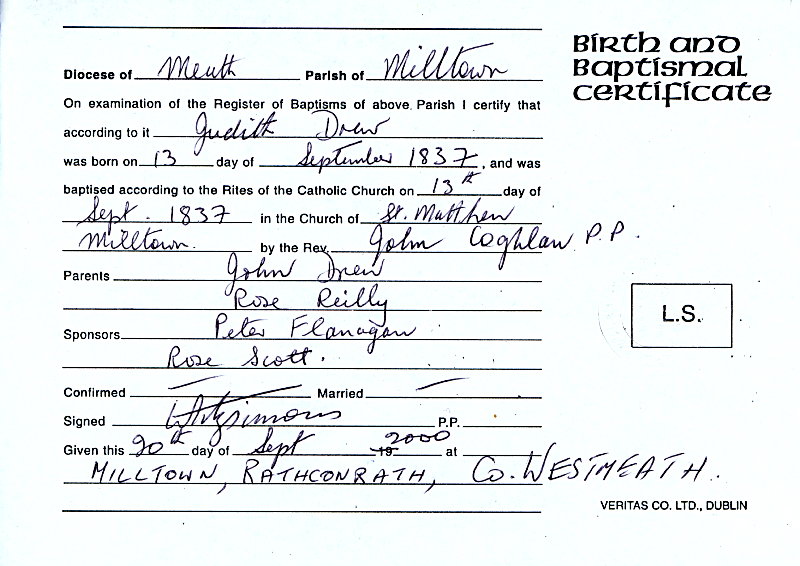 Birth and
Baptismal
certificate
Diocese of Meath Parish of Milltown
On examination of the Register of Baptisms of above Parish I certify that
according to it Judith Drew
was born on 13 day of September 1837, and was
baptised according to the Rites of the Catholic Church on 13th day of
Sept. 1837 in the Church of St. Matthew
Milltown. by the Rev. John Coghlan P.P.
Parents John Drew
Rose Reilly
Sponsors Peter Flanagan
Rose Scott.
L.S.
Confirmed — Married —
Signed Fitzsimons P.P.
Given this 20th day of Sept 19 2000 at
MILLTOWN, RATHCONRATH, Co. WESTMEATH.
VERITAS CO. LTD., DUBLIN